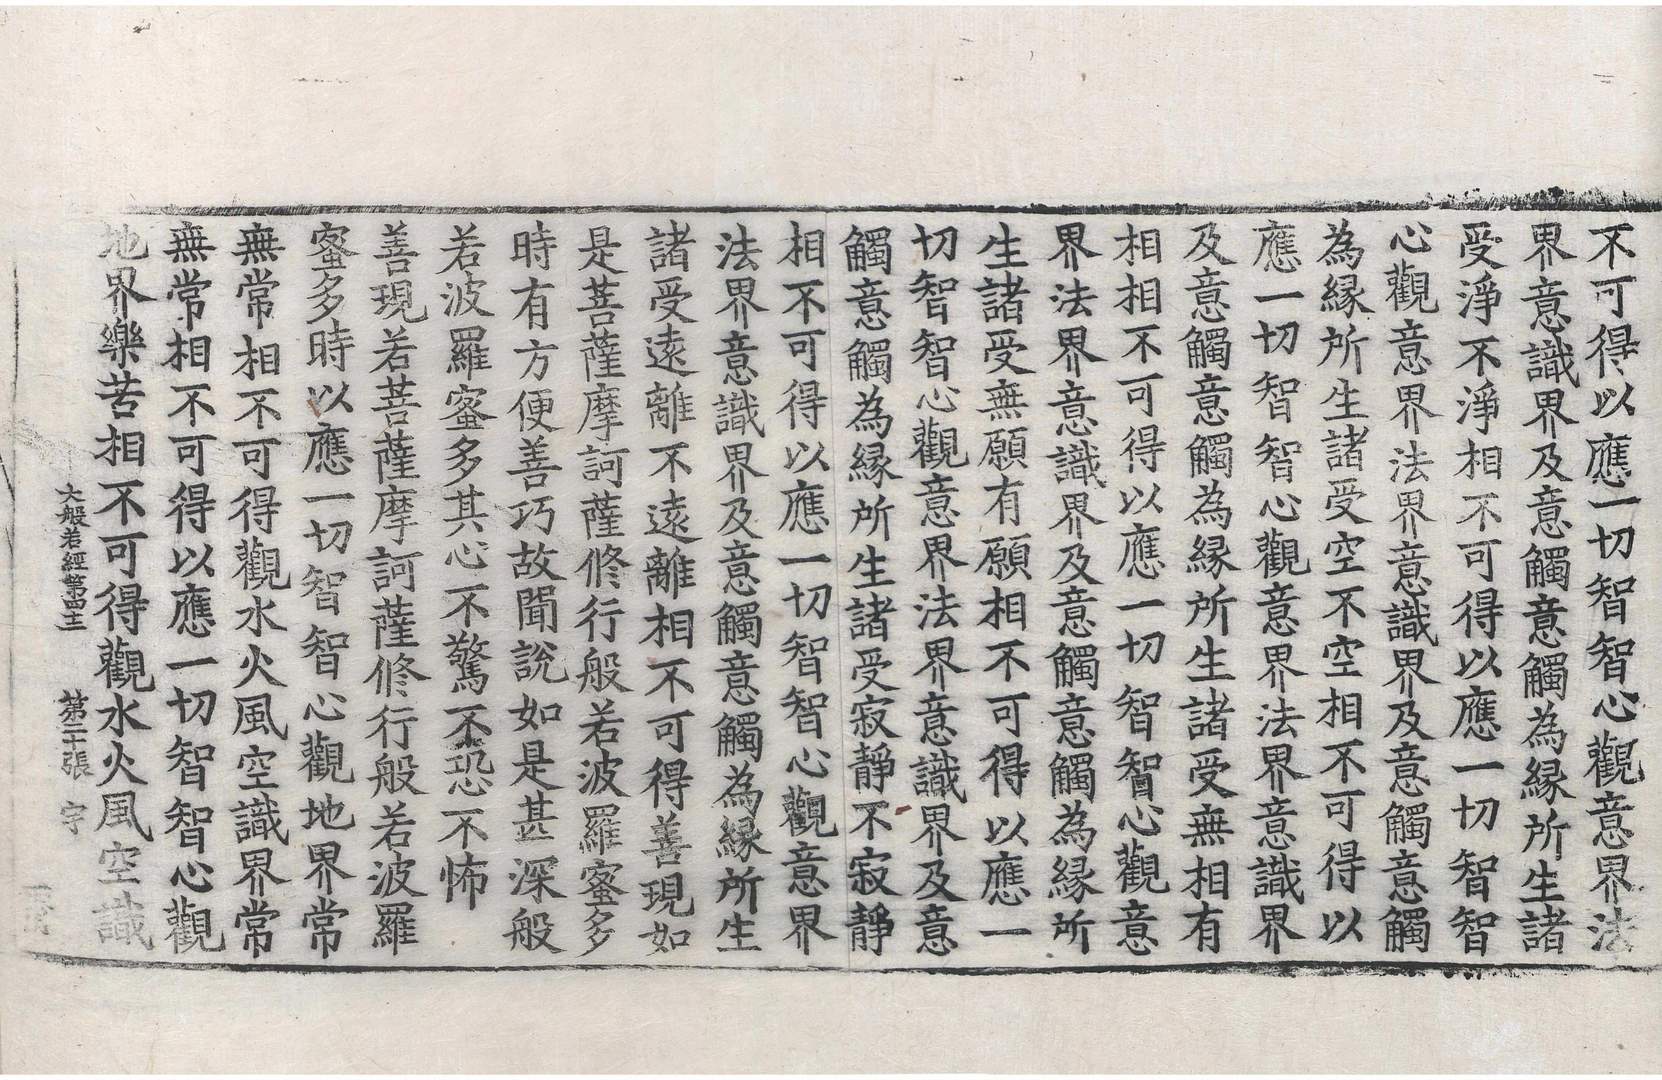 不可得以應一切智智心觀意界法
界意識界及意觸意觸為緣所生諸
受淨不淨相不可得以應一切智智
心觀意界法界意識界及意觸意觸
為緣所生諸受空不空相不可得以
應一切智智心觀意界法界意識界
及意觸意觸為緣所生諸受無相有
相相不可得以應一切智智心觀意
界法界意識界及意觸意觸為緣所
生諸受無願有願相不可得以應一
切智智心觀意界法界意識界及意
觸意觸為緣所生諸受寂靜不寂靜
相不可得以應一切智智心觀意界
法界意識界及意觸意觸為緣所生
諸受遠離不遠離相不可得善現如
是菩薩摩訶薩修行般若波羅蜜多
時有方便善巧故聞說如是甚深般
若波羅蜜多其心不驚不恐不怖
善現若菩薩摩訶薩修行般若波羅
蜜多時以應一切智智心觀地界常
無常相不可得觀水火風空識界常
無常相不可得以應一切智智心觀
地界樂苦相不可得觀水火風空識
大般若經第四十二 第二十張 宇